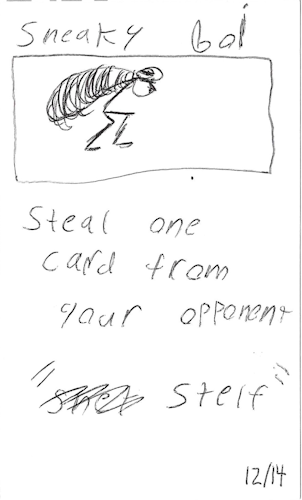 Sneaky boi
Steal one
card from
your opponent
" stelf"
12/14